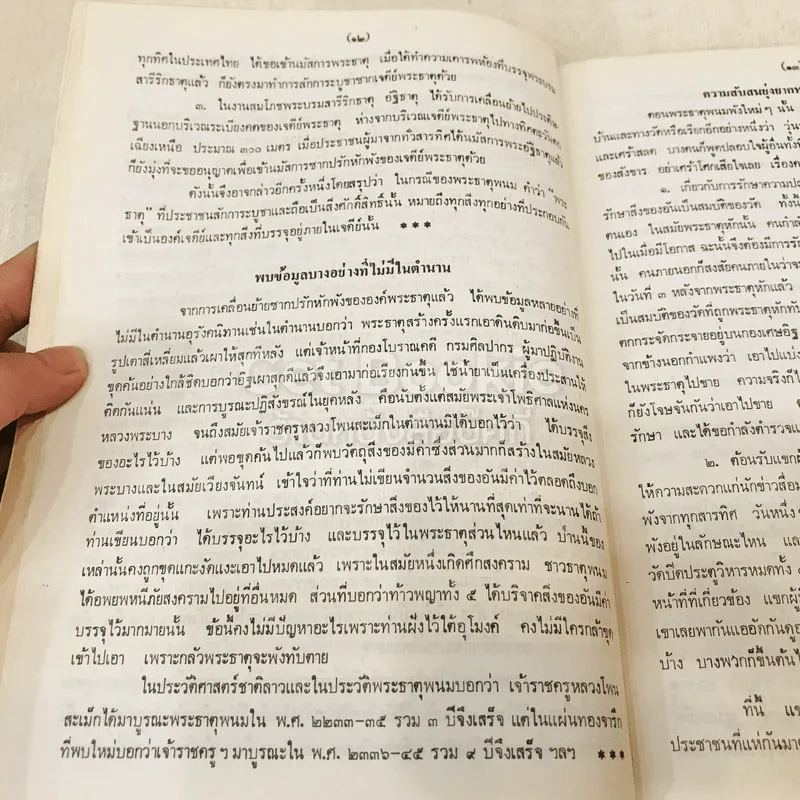 (๑๒)
ทุกทิศในประเทศไทย ได้ขอเข้านมัสการพระธาตุ เมื่อได้ทำความเคารพห้องที่บรรจุพระบรม
สารีริกธาตุแล้ว ก็ยังตรงมาทำการสักการะบูชาซากเจดีย์พระธาตุด้วย
๓. ในงานสมโภชพระบรมสารีริกธาตุ อัฐิธาตุ ได้รับการเคลื่อนย้ายไปประดิษ
ฐานนอกบริเวณระเบียงคดของเจดีย์พระธาตุ ห่างจากบริเวณเจดีย์พระธาตุไปทางทิศตะวันตก
เฉียงเหนือ ประมาณ ๓๐๐ เมตร เมื่อประชาชนผู้มาจากทั่วสารทิศได้นมัสการพระอัฐิธาตุแล้ว
ก็ยังมุ่งที่จะขออนุญาตเพื่อเข้านมัสการซากปรักหักพังของเจดีย์พระธาตุด้วย
ดังนั้นจึงอาจกล่าวอีกครั้งหนึ่งโดยสรุปว่า ในกรณีของพระธาตุพนม คำว่า "พระ
ธาตุ" ที่ประชาชนสักการะบูชาและถือเป็นสิ่งศักดิ์สิทธิ์นั้น หมายถึงทุกสิ่งทุกอย่างที่ประกอบกัน
เข้าเป็นองค์เจดีย์และทุกสิ่งที่บรรจุอยู่ภายในเจดีย์นั้น ***
พบข้อมูลบางอย่างที่ไม่มีในตำนาน
จากการเคลื่อนย้ายซากปรักหักพังขององค์พระธาตุแล้ว ได้พบข้อมูลหลายอย่างที่
ไม่มีในตำนานอุรังคนิทานเช่นในตำนานบอกว่า พระธาตุสร้างครั้งแรกเอาดินดิบมาก่อขึ้นเป็น
รูปเตาสี่เหลี่ยมแล้วเผาให้สุกทีหลัง แต่เจ้าหน้าที่กองโบราณคดี กรมศิลปากร ผู้มาปฏิบัติงาน
ขุดค้นอย่างใกล้ชิดบอกว่าอิฐเผาสุกดีแล้วจึงเอามาก่อเรียงกันขึ้น ใช้น้ำยาเป็นเครื่องประสานให้
ติดกันแน่น และการบูรณะปฏิสังขรณ์ในยุคหลัง คือนับตั้งแต่สมัยพระเจ้าโพธิศาลแห่งนคร
หลวงพระบาง จนถึงสมัยเจ้าราชครูหลวงโพนสะเม็กในตำนานมิได้บอกไว้ว่า ได้บรรจุสิ่ง
ของอะไรไว้บ้าง แต่พอขุดค้นไปแล้วก็พบวัตถุสิ่งของมีค่าซึ่งส่วนมากก็สร้างในสมัยหลวง
พระบางและในสมัยเวียงจันทน์ เข้าใจว่าที่ท่านไม่เขียนจำนวนสิ่งของอันมีค่าไว้ตลอดถึงบอก
ตำแหน่งที่อยู่นั้น เพราะท่านประสงค์อยากจะรักษาสิ่งของไว้ให้นานที่สุดเท่าที่จะนานได้ถ้า
ท่านเขียนบอกว่า ได้บรรจุอะไรไว้บ้าง และบรรจุไว้ในพระธาตุส่วนไหนแล้ว ป่านนี้ของ
เหล่านั้นคงถูกขุดแกะงัดแงะเอาไปหมดแล้ว เพราะในสมัยหนึ่งเกิดศึกสงคราม ชาวธาตุพนม
ได้อพยพหนีภัยสงครามไปอยู่ที่อื่นหมด ส่วนที่บอกว่าท้าวพญาทั้ง ๕ ได้บริจาคสิ่งของอันมีค่า
บรรจุไว้มากมายนั้น ข้อนี้คงไม่มีปัญหาอะไรเพราะท่านฝังไว้ใต้อุโมงค์ คงไม่มีใครกล้าขุด
เข้าไปเอา เพราะกลัวพระธาตุจะพังทับตาย
ในประวัติศาสตร์ชาติลาวและในประวัติพระธาตุพนมบอกว่า เจ้าราชครูหลวงโพน
สะเม็กได้มาบูรณะพระธาตุพนมใน พ.ศ. ๒๒๓๓-๓๕ รวม ๓ ปีจึงเสร็จ แต่ในแผ่นทองจารึก
ที่พบใหม่บอกว่าเจ้าราชครู ฯ มาบูรณะใน พ.ศ. ๒๓๓๖-๔๕ รวม ๙ ปีจึงเสร็จ ฯลฯ ***
(๑๓)
ความสับสนยุ่งยาก
ตอนพระธาตุพนมพังใหม่ๆ นั้น
บ้านและทางวัดหรือเรียกอีกอย่างหนึ่งว่า
และเศร้าสลด บางคนก็พูดปลอบใจผู้อื่นทั้งที่
ของสังขาร อย่าเศร้าโศกเสียใจเลย
๑. เกี่ยวกับการรักษาความ
รักษาสิ่งของอันเป็นสมบัติของวัด
ตนเอง ในสมัยพระธาตุหักนั้น
ไปในเมื่อมีโอกาส ฉะนั้นจึงต้องมีการ
นั้น คนภายนอกก็สงสัยคนภายในว่า
ในวันที่ ๓ หลังจากพระธาตุหักแล้ว
เป็นสมบัติของวัดที่ถูกพระธาตุหักทับ
ตกกระจัดกระจายอยู่บนกองเศษอิฐ
จากข้างนอกกำแพงว่า เอาไปแบ่ง
ในพระธาตุไปขาย ความจริงก็
ก็ยังโจษจันกันว่าเอาไปขาย
รักษา และได้ขอกำลังตำรวจ
๒. ต้อนรับแขก
ให้ความสะดวกแก่นักข่าวสื่อ
พังจากทุกสารทิศ วันหนึ่ง
พังอยู่ในลักษณะไหน
วัดปิดประตูวิหารหมดทั้ง
หน้าที่ที่เกี่ยวข้อง แขก
เขาเลยพากันแออัดกัน
บ้าง บางพวกก็ขึ้นต้น
ที่นี้
ประชาชนที่แห่กันมา